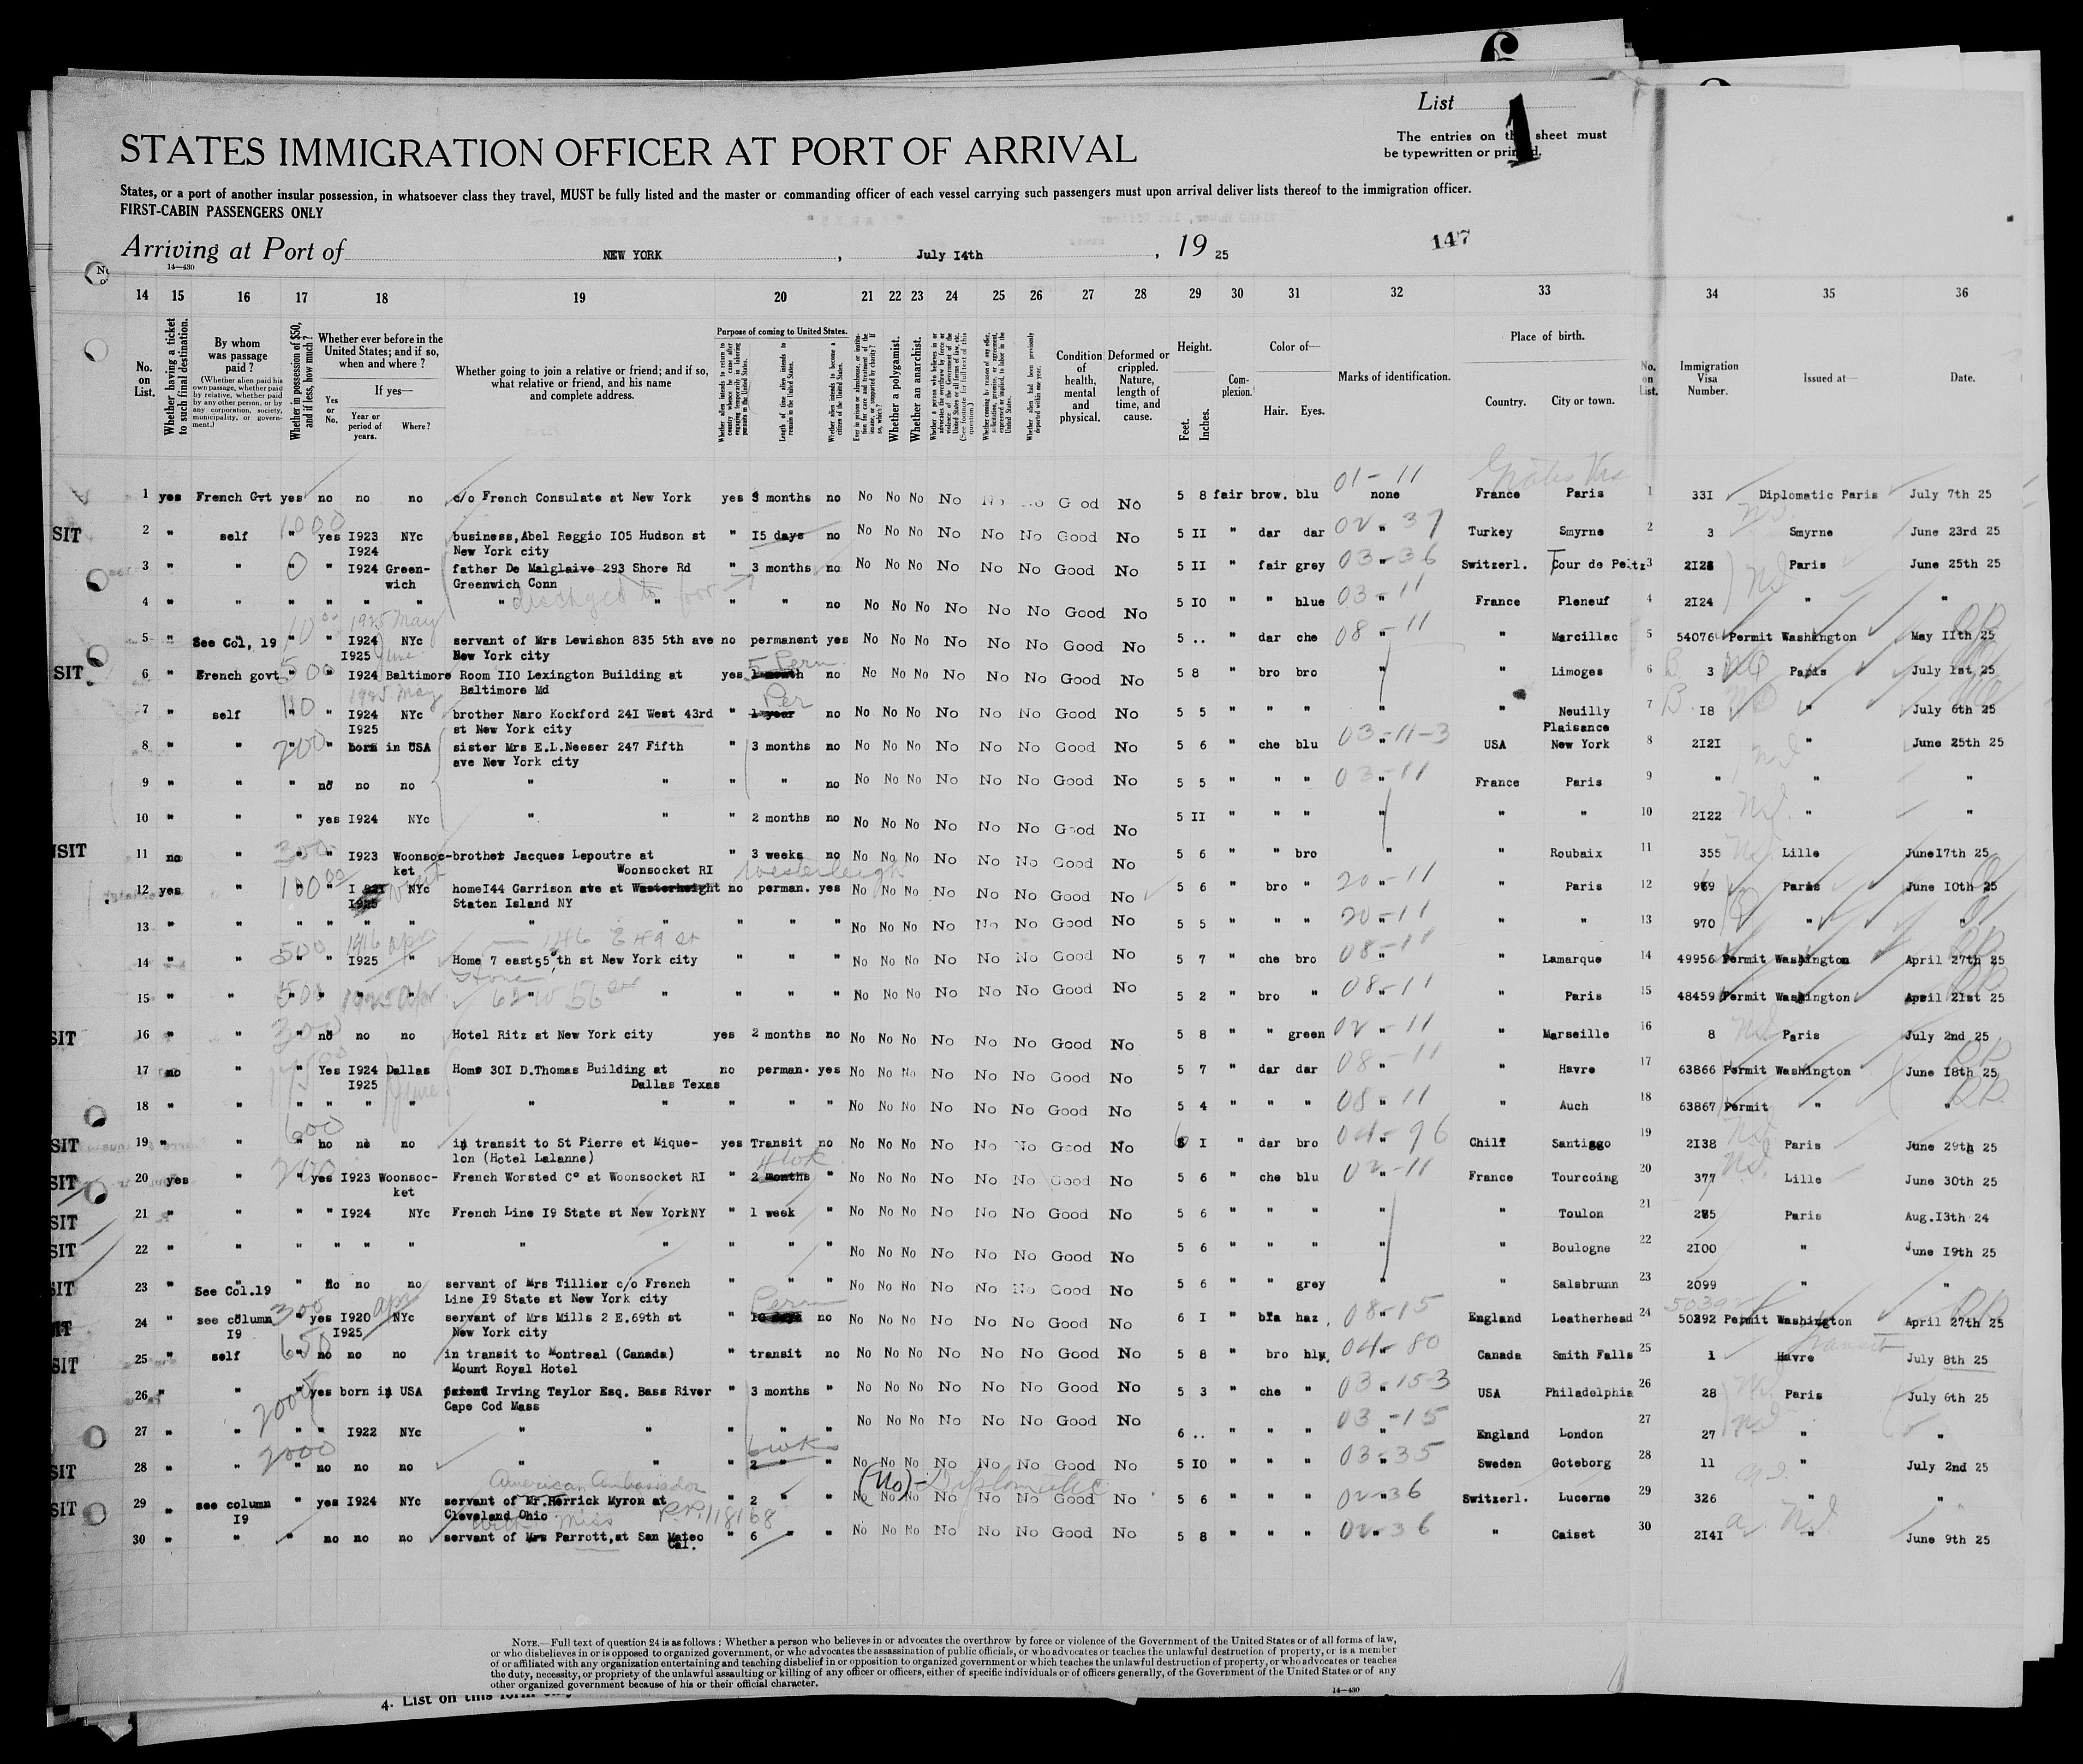 List 1
The entries on this sheet must
be typewritten or printed.
STATES IMMIGRATION OFFICER AT PORT OF ARRIVAL
States, or a port of another insular possession, in whatsoever class they travel, MUST be fully listed and the master or commanding officer of each vessel carrying such passengers must upon arrival deliver lists thereof to the immigration officer.
FIRST-CABIN PASSENGERS ONLY
Arriving at Port of NEW YORK, July I4th, 19 25
147
14—430
14 15 16 17 18 19 20 21 22 23 24 25 26 27 28 29 30 31 32 33 34 35 36
No. on List.
Whether having a ticket to such final destination.
By whom was passage paid?
(Whether alien paid his own passage, whether paid by relative, whether paid by any other person, or by any corporation, society, municipality, or government.)
Whether in possession of $50, and if less, how much?
Whether ever before in the United States; and if so, when and where?
If yes—
Yes or No. Year or period of years. Where?
Whether going to join a relative or friend; and if so, what relative or friend, and his name and complete address.
Purpose of coming to United States.
Length of time alien intends to remain in the United States.
Whether alien intends to become a citizen of the United States.
Whether a polygamist.
Whether an anarchist.
Condition of health, mental and physical.
Deformed or crippled. Nature, length of time, and cause.
Height. Feet. Inches.
Complexion.
Color of— Hair. Eyes.
Marks of identification.
Place of birth. Country. City or town.
No. on List.
Immigration Visa Number.
Issued at—
Date.
1 yes French Gvt yes no no no c/o French Consulate at New York yes 3 months no No No No No No No Good No 5 8 fair brow. blu 01-11 none France Paris 1 33I Diplomatic Paris July 7th 25
SIT 2 " self 1000 " yes I923 NYc business,Abel Reggio I05 Hudson st " I5 days no No No No No No No Good No 5 II " dar dar 02 " 37 Turkey Smyrne 2 3 Smyrne June 23rd 25
I924 New York city
3 " " 0 " I924 Green- father De Malglaive 293 Shore Rd " 3 months no No No No No No No Good No 5 II " fair grey 03-36 Switzerl. Tour de Peltz 3 2I23 Paris June 25th 25
wich Greenwich Conn
4 " " " " " " " " " " no No No No No No No Good No 5 IO " " blue 03-11 France Pleneuf 4 2I24 " "
5 " See Col, 19 " " I924 NYc servant of Mrs Lewishon 835 5th ave no permanent yes No No No No No No Good No 5 .. " dar che 08-11 " Marcillac 5 54076 Permit Washington May IIth 25
I925 New York city
SIT 6 " French govt 500 " I924 Baltimore Room IIO Lexington Building at yes 1 month no No No No No No No Good No 5 8 " bro bro " " Limoges 6 3 Paris July 1st 25
Baltimore Md
7 " self 110 " " I924 NYc brother Naro Kockford 24I West 43rd " 1 year no No No No No No No Good No 5 5 " " " " " Neuilly 7 I8 " July 6th 25
I925 st New York city Plaisance
8 " " 200 " " born in USA sister Mrs E.L.Neeser 247 Fifth " 3 months no No No No No No No Good No 5 6 " che blu 03-11-3 USA New York 8 2I2I " June 25th 25
ave New York city
9 " " " no no no " " " no No No No No No No Good No 5 5 " " " 03-11 France Paris 9 " " "
10 " " " yes I924 NYc " " " 2 months no No No No No No No Good No 5 II " " " " " " 10 2I22 " "
NSIT 11 no " 300 " " I923 Woonsoc- brother Jacques Lepoutre at " 3 weeks no No No No No No No Good No 5 6 " " bro " " Roubaix 11 355 Lille June I7th 25
ket Woonsocket RI
Westerleigh
12 yes " 100 " " NYc home I44 Garrison ave at Wasterheight no perman. yes No No No No No No Good No 5 6 " bro " 20-11 " Paris 12 969 Paris June I0th 25
I925 Staten Island NY
13 " " " " " " " " " " " No No No No No No Good No 5 5 " " " 20-11 " " 13 970 " "
146 E 49 st
14 " " 500 " " I925 " Home 7 east 55 th st New York city " " " No No No No No No Good No 5 7 " che bro 08-11 " Lamarque 14 49956 Permit Washington April 27th 25
15 " " 500 " 62 W 56 " " " " No No No No No No Good No 5 2 " bro " 08-11 " Paris 15 48459 Permit Washington April 2Ist 25
SIT 16 " " 300 " no no no Hotel Ritz at New York city yes 2 months no No No No No No No Good No 5 8 " " green 02 " 11 " Marseille 16 8 Paris July 2nd 25
17 no " " Yes I924 Dallas Home 30I D.Thomas Building at no perman. yes No No No No No No Good No 5 7 " dar dar 08-11 " Havre 17 63866 Permit Washington June I8th 25
I925 Dallas Texas
18 " " " " " " " " " " " No No No No No No Good No 5 4 " " " 08-11 " Auch 18 63867 Permit " "
SIT 19 " " 600 " no no no in transit to St Pierre et Mique- yes Transit no No No No No No No Good No 6 I " dar bro 04-96 Chili Santiago 19 2I38 Paris June 29th 25
lon (Hotel Lalanne)
4 wk
SIT 20 yes " " yes I923 Woonsoc- French Worsted C° at Woonsocket RI " 2 months " No No No No No No Good No 5 6 " che blu 02-11 France Tourcoing 20 377 Lille June 30th 25
ket
SIT 21 " " " " I924 NYc French Line I9 State st New York NY " 1 week " No No No No No No Good No 5 6 " " " " " Toulon 21 285 Paris Aug.I3th 24
SIT 22 " " " " " " " " " " " No No No No No No Good No 5 6 " " " " " Boulogne 22 2I00 " June I9th 25
SIT 23 " See Col.19 " no no no servant of Mrs Tillier c/o French " " " No No No No No No Good No 5 6 " " grey " " Salsbrunn 23 2099 " "
Line I9 State st New York city
24 " see column 300 " yes I920 NYc servant of Mrs Mills 2 E.69th st " 10 days no No No No No No No Good No 6 I " bla haz. 08-15 England Leatherhead 24 50392 Permit Washington April 27th 25
I9 I925 New York city
SIT 25 " self 650 " no no no in transit to Montreal (Canada) " transit no No No No No No No Good No 5 8 " bro blu 04-80 Canada Smith Falls 25 1 Havre July 8th 25
Mount Royal Hotel
26 " " 2000 " yes born in USA parent Irving Taylor Esq. Bass River " 3 months " No No No No No No Good No 5 3 " che " 03-15-3 USA Philadelphia 26 28 Paris July 6th 25
Cape Cod Mass
27 " " " " I922 NYc " " " " " No No No No No No Good No 6 .. " " " 03-15 England London 27 27 " "
6 wks
SIT 28 " " 2000 " no no no " " " 2 " " No No No No No No Good No 5 IO " " " 03-35 Sweden Goteborg 28 11 " July 2nd 25
American Ambassador (No)-Diplomatic
SIT 29 " see column " yes I924 NYc servant of Mr.Herrick Myron at " 2 " " No No No No No No Good No 5 6 " " " 02-36 Switzerl. Lucerne 29 326 " "
I9 Cleveland Ohio
with Miss
30 " " " no no no servant of Mrs Parrott,at San Mateo " 6 " " No No No No No No Good No 5 8 " " " 02-36 " Caiset 30 2I4I " June 9th 25
Cal.
NOTE.—Full text of question 24 is as follows: Whether a person who believes in or advocates the overthrow by force or violence of the Government of the United States or of all forms of law,
or who disbelieves in or is opposed to organized government, or who advocates the assassination of public officials, or who advocates or teaches the unlawful destruction of property, or is a member
of or affiliated with any organization entertaining and teaching disbelief in or opposition to organized government or which teaches the unlawful destruction of property, or who advocates or teaches
the duty, necessity, or propriety of the unlawful assaulting or killing of any officer or officers, either of specific individuals or of officers generally, of the Government of the United States or of any
other organized government because of his or their official character.
14—430
4. List on this form